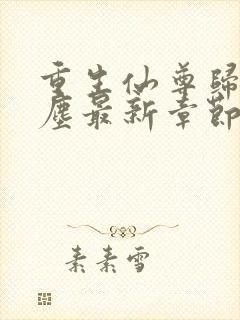 重生仙尊歸
塵最新章節
素素雪